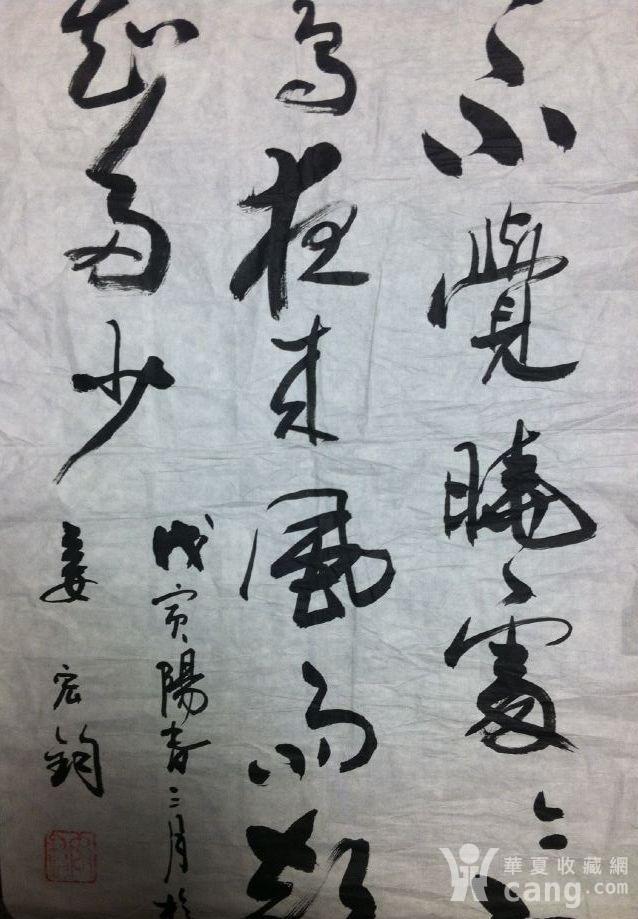 不覺曉處
鳥夜來風雨聲
知多少
戊寅陽春三月於
姜宏鈞
華夏收藏網
cang.com